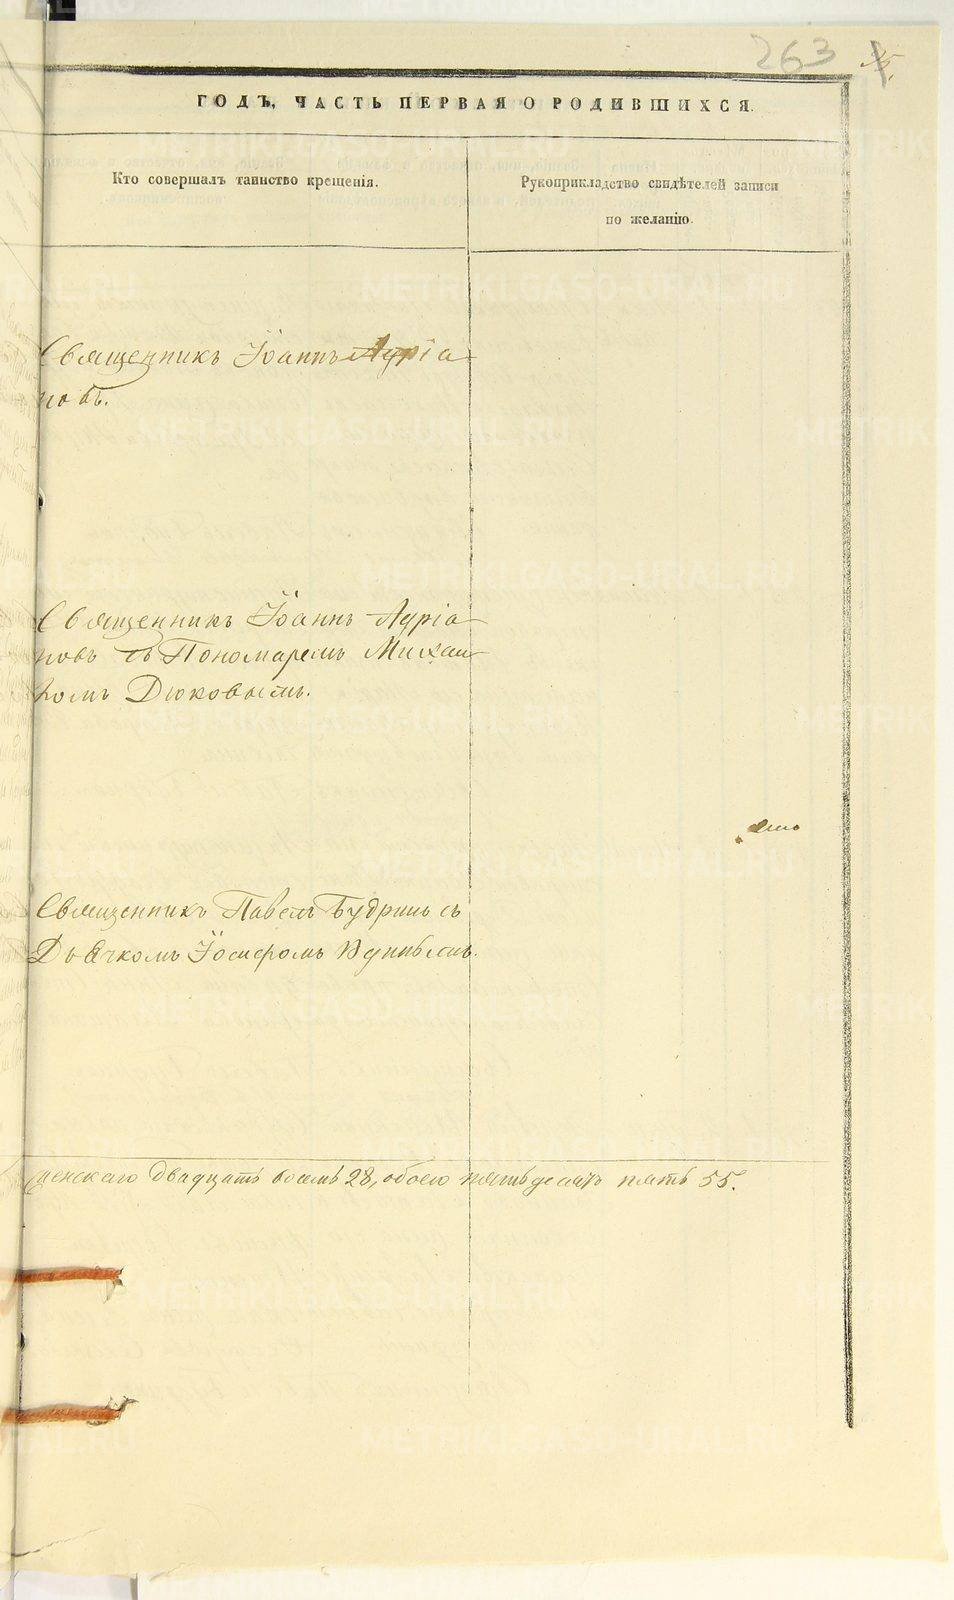 263
ГОДЪ, ЧАСТЬ ПЕРВАЯ О РОДИВШИХСЯ.
Кто совершалъ таинство крещенія.
Рукоприкладство свидѣтелей записи
по желанію.
Священникъ Іоаннъ Адріа-
новъ.
Священникъ Іоаннъ Адріа-
новъ съ Пономаремъ Михаи-
ломъ Дюковымъ.
Священникъ Павелъ Будринъ съ
Дьячкомъ Іосифомъ
женскаго двадцать восемь 28, обоего пятьдесятъ пять 55.
METRIKI.GASO-URAL.RU